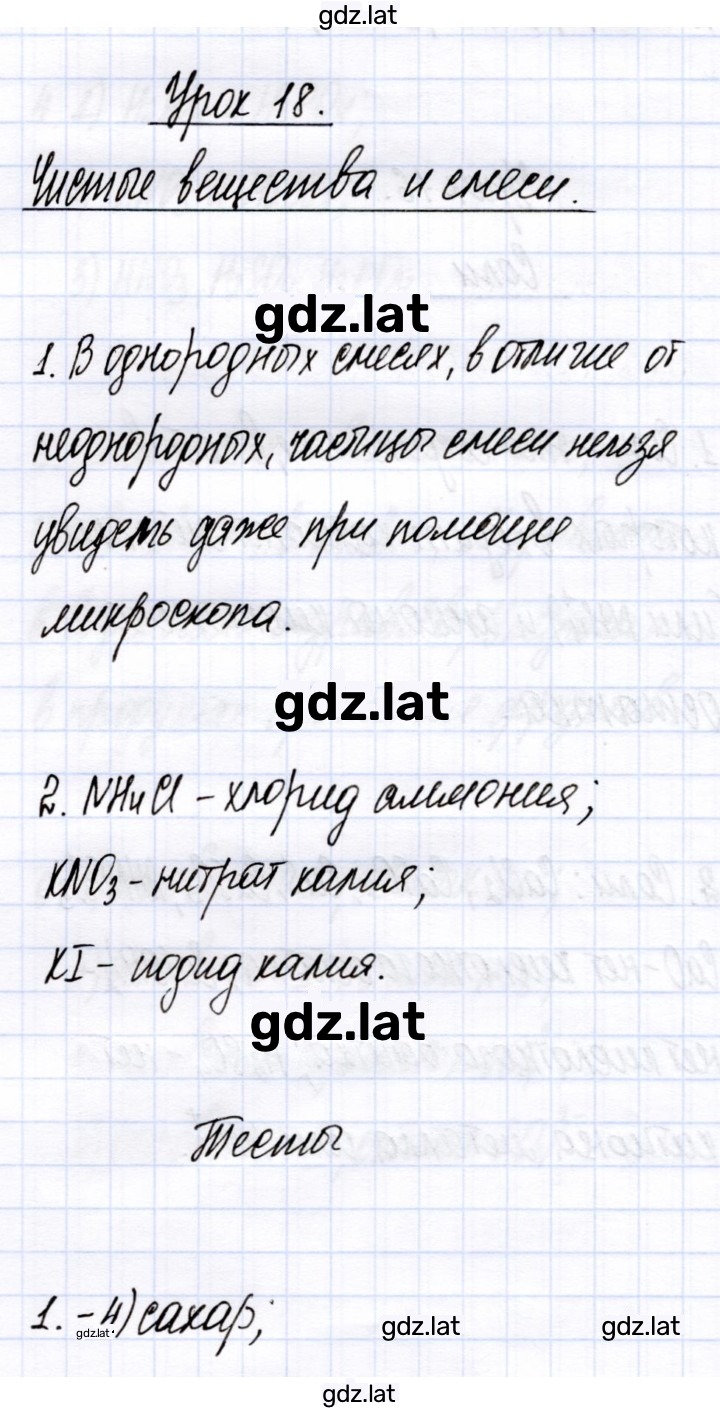 gdz.lat
Урок 18.
Чистые вещества и смеси.
gdz.lat
1. В однородных смесях, в отличие от
неоднородных, частицы смеси нельзя
увидеть даже при помощи
микроскопа.
gdz.lat
2. NH₄Cl – хлорид аммония;
KNO₃ – нитрат калия;
KI – иодид калия.
gdz.lat
Тесты
1. – 4) сахар;
gdz.lat
gdz.lat
gdz.lat
gdz.lat